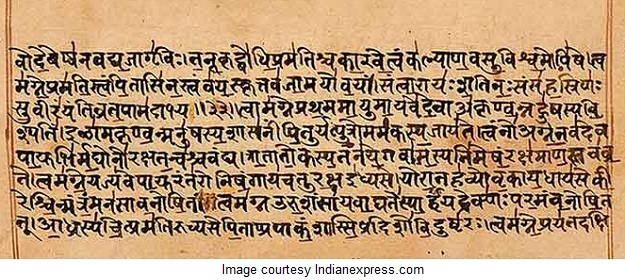 वो देवेष्वनवद्य जागृविः । तनूकृद्बोधि प्रमतिश्च कारवे त्वं कल्याण वसु विश्वमोपिषे । त्व
मग्ने प्रमतिस्त्वं पितासि नस्त्वं वयस्कृत्तव जामयो वयं । सं त्वा रायः शतिनः सं सहस्रिणः
सुवीरं यंति व्रतपामदाभ्य ॥३३॥ त्वामग्ने प्रथममायुमायवे देवा अकृण्वन्नहुषस्य वि
श्पतिं । इळामकृण्वन्मनुषस्य शासनीं पितुर्यत्पुत्रो ममकस्य जायते । त्वं नो अग्ने तव देव
पायुभिर्मघोनो रक्ष तन्वश्च वंद्य । त्राता तोकस्य तनये गवामस्यनिमेषं रक्षमाणस्तव व्र
ते । त्वमग्ने यज्यवे पायुरंतरो निषंगाय चतुरक्ष इध्यसे । यो रातहव्यो वृकाय धायसे की
रेश्चिन्मंत्रं मनसा वनोषि तं । त्वमग्न उरुशंसाय वाघते स्पार्हं यद्रेक्णः परमं वनोषि त
त् । आध्रस्य चित्प्रमतिरुच्यसे पिता प्र पाकं शास्सि प्र दिशो विदुष्टरः । त्वमग्ने प्रयतदक्षि
Image courtesy Indianexpress.com